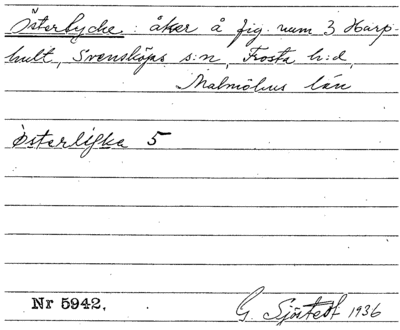 Österlycke : åker å fig. num 3 Harp-
hult, Svensköps s:n, Frosta h:d,
Malmöhus län
Österlÿka 5
Nr 5942. G. Sjöstedt 1936